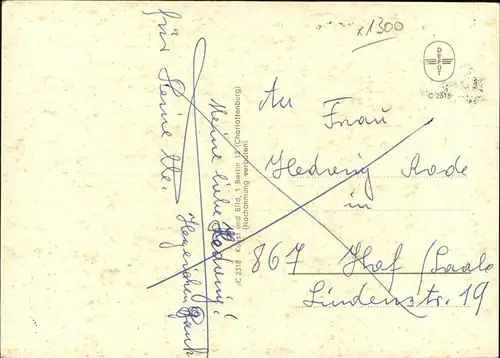 x1300
DEPOT
C 2318
An
Frau
Hedwig Rode
in
867 Hof/Saale
Lindenstr. 19
C 2318 Kunst und Bild, 1 Berlin 12 (Charlottenburg)
(Nachahmung verboten)
Meine liebe Hedwig!
Herzlichen Dank
für Deine